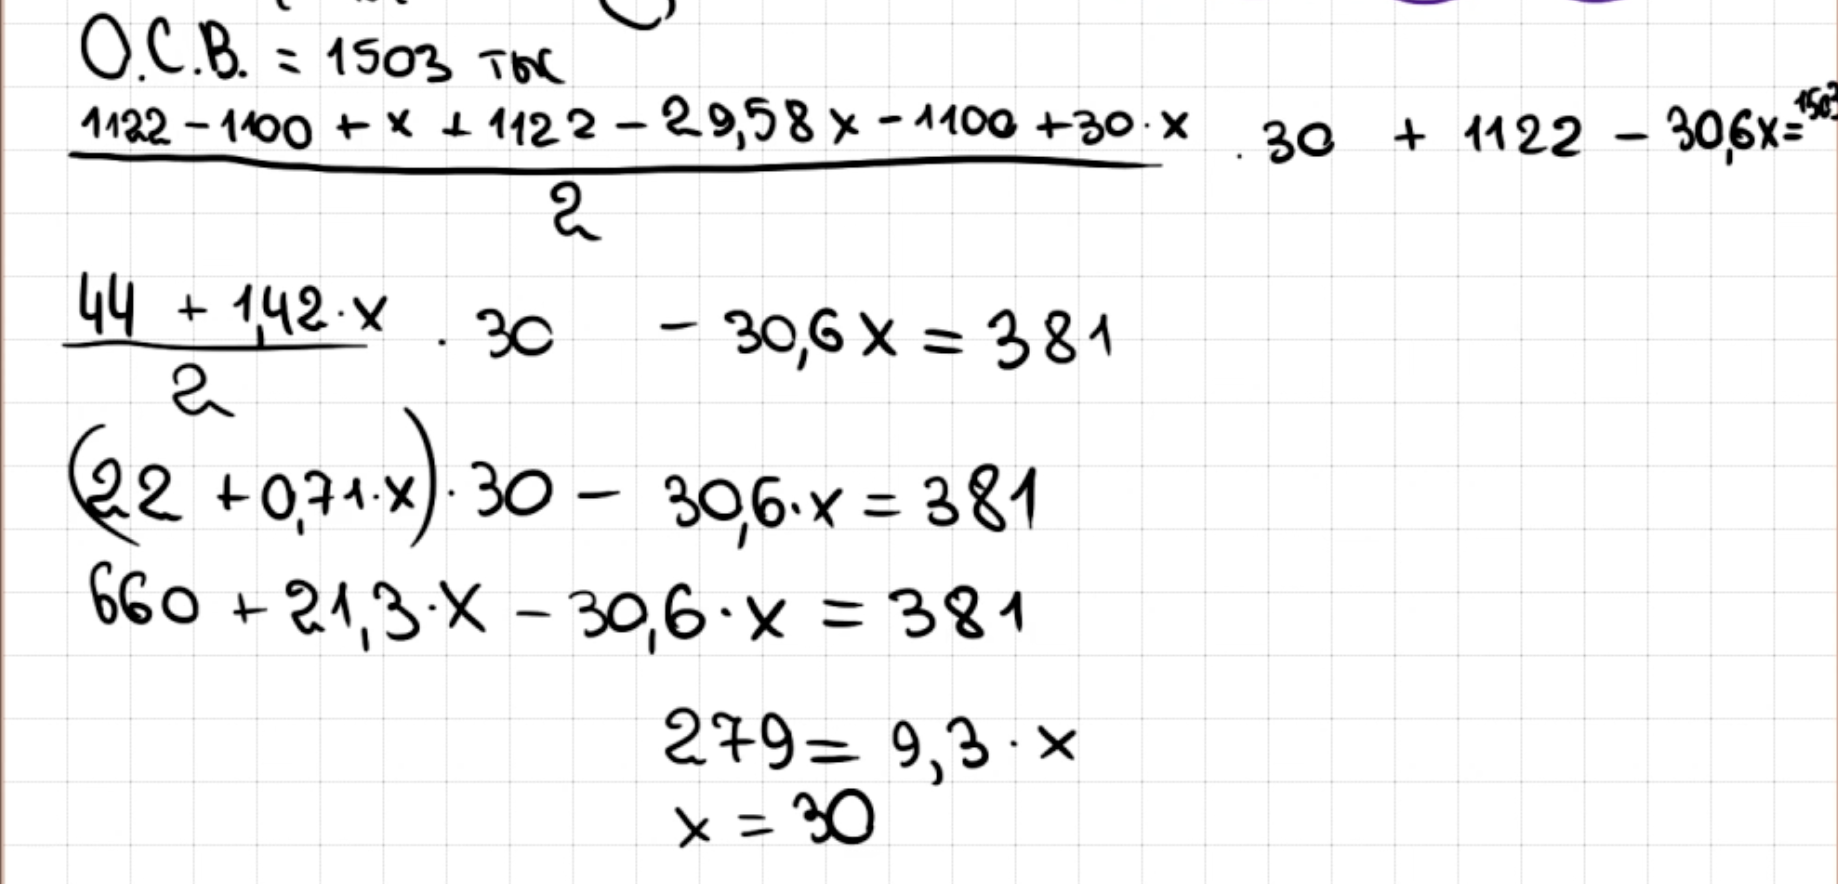 О.С.В. = 1503 тыс
(1122 - 1100 + x + 1122 - 29,58x - 1100 + 30·x)/2 · 30 + 1122 - 30,6x = 1503
(44 + 1,42·x)/2 · 30 - 30,6x = 381
(22 + 0,71·x)·30 - 30,6·x = 381
660 + 21,3·x - 30,6·x = 381
279 = 9,3·x
x = 30